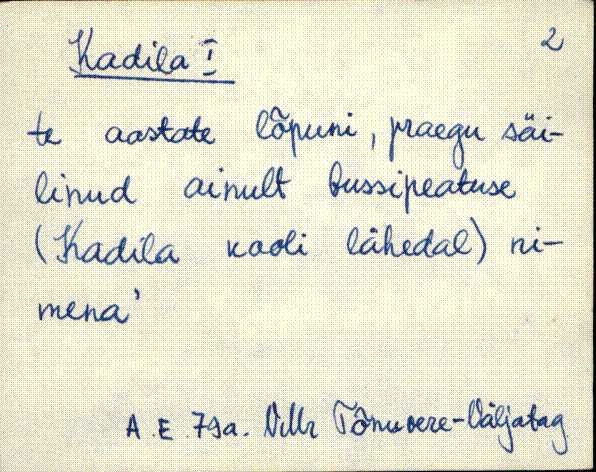 Kadila I 2
te aastate lõpuni, praegu säi-
linud ainult bussipeatuse
(Kadila kooli lähedal) ni-
mena'
A. E. 79a. VMr Tõnuvere-Väljatag